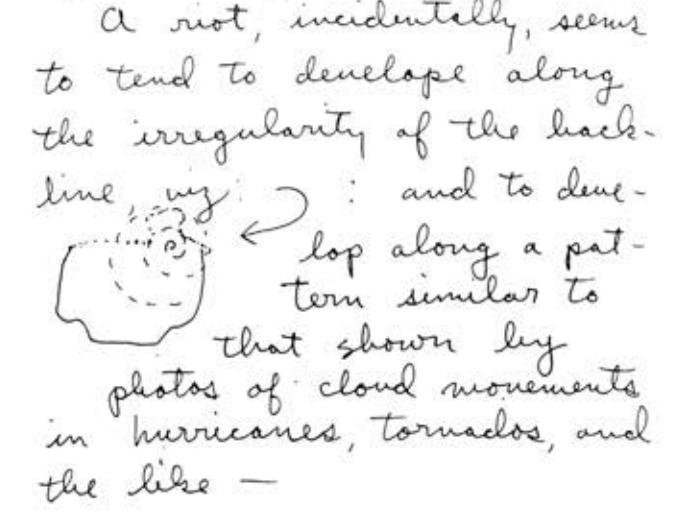 A riot, incidentally, seems
to tend to develope along
the irregularity of the back-
line, viz : : and to deve-
lop along a pat-
tern similar to
that shown by
photos of cloud movements
in hurricanes, tornados, and
the like —